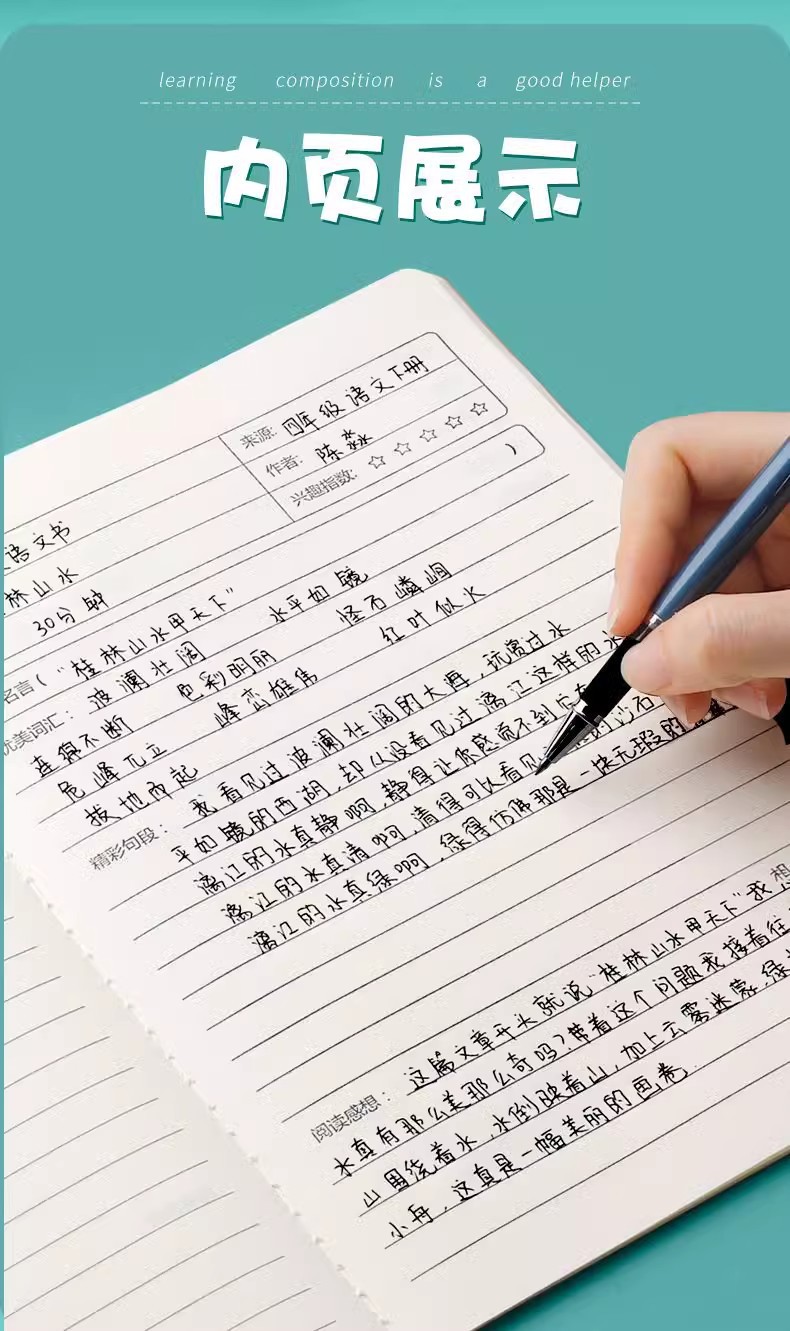 learning composition is a good helper
内页展示
来源: 四年级语文下册
作者: 陈淼
兴趣指数: ☆☆☆☆☆
)
语文书
林山水
30分钟
名言("桂林山水甲天下"
优美词汇: 波澜壮阔 水平如镜
连绵不断 色彩明丽 怪石嶙峋
危峰兀立 峰峦雄伟 红叶似火
拔地而起
精彩句段: 我看见过波澜壮阔的大海,玩赏过水
平如镜的西湖,却从没看见过漓江这样的水
漓江的水真静啊,静得让你感觉不到它在
漓江的水真清啊,清得可以看见 的沙石
漓江的水真绿啊,绿得仿佛那是一块无瑕的
阅读感想: 这篇文章开头就说"桂林山水甲天下"我想
水真有那么美那么奇吗?带着这个问题我接着往
山围绕着水,水倒映着山,加上云雾迷蒙,绿
小舟,这真是一幅美丽的画卷.